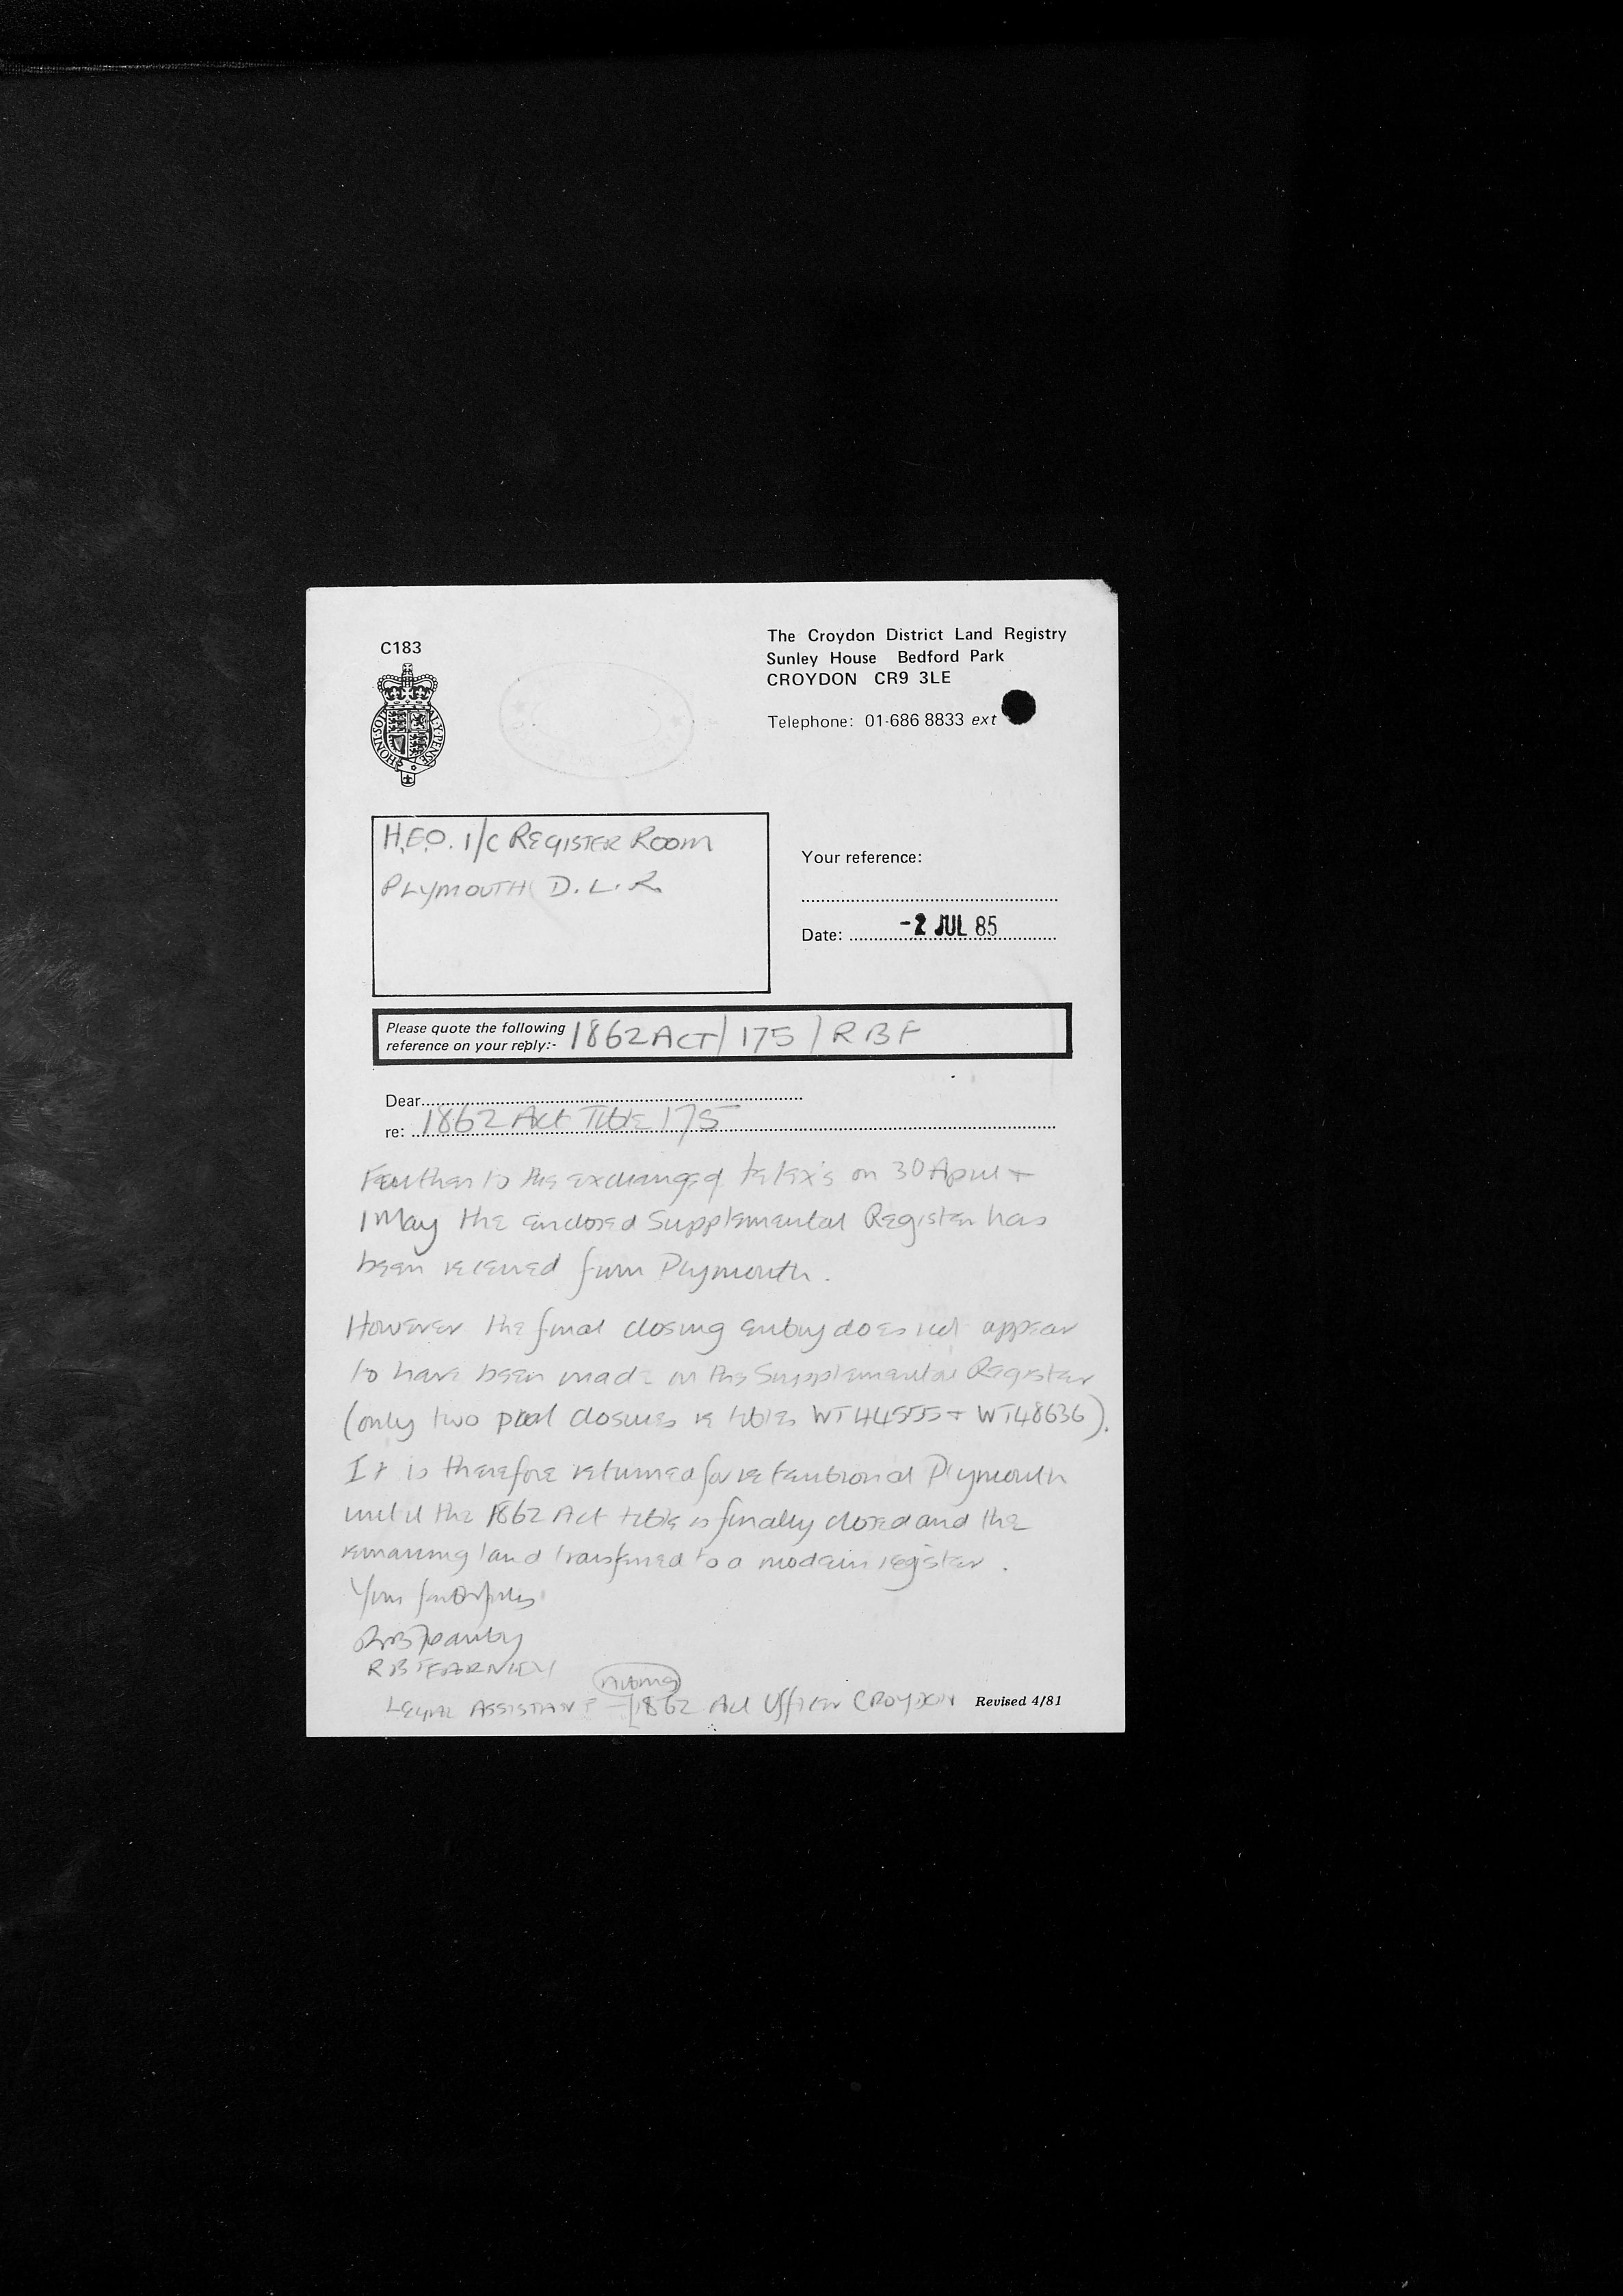 C183
The Croydon District Land Registry
Sunley House Bedford Park
CROYDON CR9 3LE
Telephone: 01-686 8833 ext
HONI·SOI AL·Y·PENSE
H.E.O. I/C REGISTER ROOM
PLYMOUTH D.L.R.
Your reference:
Date: -2 JUL 85
Please quote the following
reference on your reply:- 1862 ACT / 175 / R B F
Dear
re: 1862 Act Title 175
Further to the exchange of telex's on 30 April +
1 May the enclosed Supplemental Register has
been received from Plymouth.
However the final closing entry does not appear
to have been made on the Supplemental Register
(only two part closures re titles WT44555 + WT48636).
It is therefore returned for retention at Plymouth
until the 1862 Act title is finally closed and the
remaining land transferred to a modern register.
Yours faithfully
RB Fearnley
R B FEARNLEY
LEGAL ASSISTANT - 1862 Act Officer CROYDON
Revised 4/81